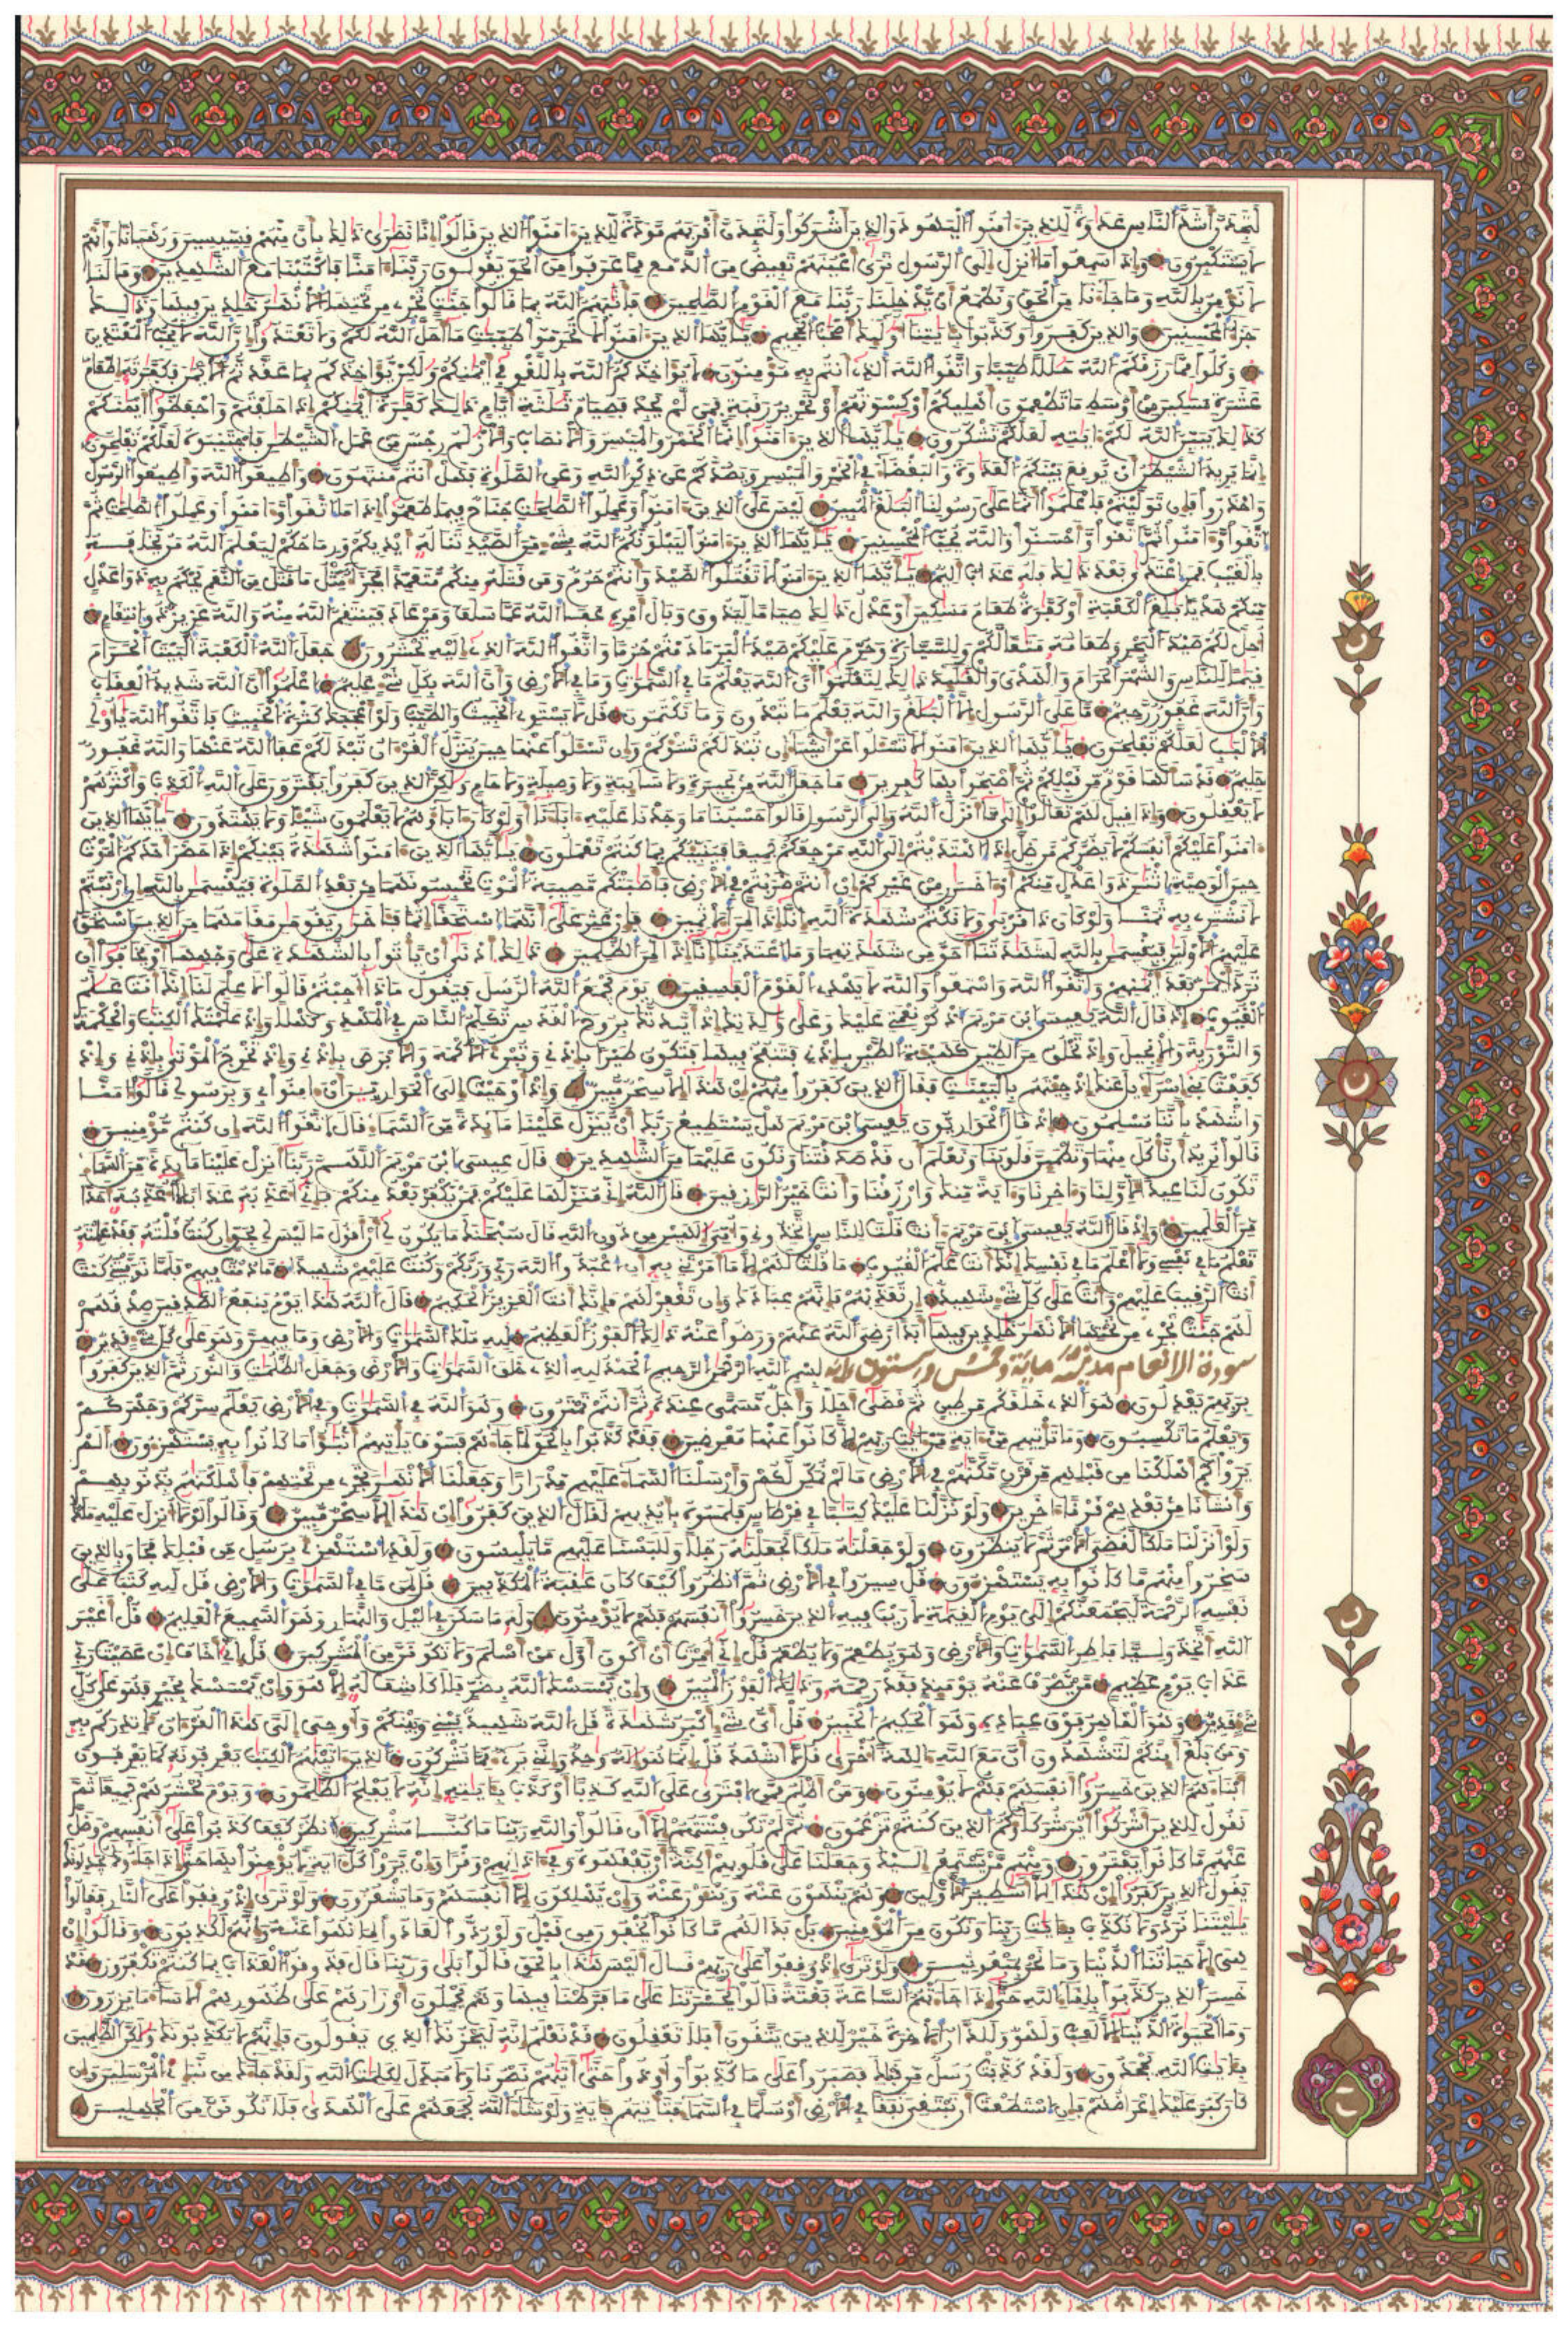 لتجدن أشد الناس عداوة للذين ءامنوا اليهود والذين أشركوا ولتجدن أقربهم مودة للذين ءامنوا الذين قالوا إنا نصرى ذلك بأن منهم قسيسين ورهبانا وأنهم
لا يستكبرون وإذا سمعوا ما أنزل إلى الرسول ترى أعينهم تفيض من الدمع مما عرفوا من الحق يقولون ربنا ءامنا فاكتبنا مع الشهدين وما لنا
لا نؤمن بالله وما جاءنا من الحق ونطمع أن يدخلنا ربنا مع القوم الصلحين فأثبهم الله بما قالوا جنت تجري من تحتها الأنهر خلدين فيها وذلك
جزاء المحسنين والذين كفروا وكذبوا بئايتنا أولئك أصحب الجحيم يأيها الذين ءامنوا لا تحرموا طيبت ما أحل الله لكم ولا تعتدوا إن الله لا يحب المعتدين
وكلوا مما رزقكم الله حللا طيبا واتقوا الله الذي أنتم به مؤمنون لا يؤاخذكم الله باللغو في أيمنكم ولكن يؤاخذكم بما عقدتم الأيمن فكفرته إطعام
عشرة مسكين من أوسط ما تطعمون أهليكم أو كسوتهم أو تحرير رقبة فمن لم يجد فصيام ثلثة أيام ذلك كفرة أيمنكم إذا حلفتم واحفظوا أيمنكم
كذلك يبين الله لكم ءايته لعلكم تشكرون يأيها الذين ءامنوا إنما الخمر والميسر والأنصاب والأزلم رجس من عمل الشيطن فاجتنبوه لعلكم تفلحون
إنما يريد الشيطن أن يوقع بينكم العدوة والبغضاء في الخمر والميسر ويصدكم عن ذكر الله وعن الصلوة فهل أنتم منتهون وأطيعوا الله وأطيعوا الرسول
واحذروا فإن توليتم فاعلموا أنما على رسولنا البلغ المبين ليس على الذين ءامنوا وعملوا الصلحت جناح فيما طعموا إذا ما اتقوا وءامنوا وعملوا الصلحت ثم
اتقوا وءامنوا ثم اتقوا وأحسنوا والله يحب المحسنين يأيها الذين ءامنوا ليبلونكم الله بشيء من الصيد تناله أيديكم ورماحكم ليعلم الله من يخافه
بالغيب فمن اعتدى بعد ذلك فله عذاب أليم يأيها الذين ءامنوا لا تقتلوا الصيد وأنتم حرم ومن قتله منكم متعمدا فجزاء مثل ما قتل من النعم يحكم به ذوا عدل
منكم هديا بلغ الكعبة أو كفرة طعام مسكين أو عدل ذلك صياما ليذوق وبال أمره عفا الله عما سلف ومن عاد فينتقم الله منه والله عزيز ذو انتقام
أحل لكم صيد البحر وطعامه متعا لكم وللسيارة وحرم عليكم صيد البر ما دمتم حرما واتقوا الله الذي إليه تحشرون جعل الله الكعبة البيت الحرام
قيما للناس والشهر الحرام والهدي والقلئد ذلك لتعلموا أن الله يعلم ما في السموت وما في الأرض وأن الله بكل شيء عليم اعلموا أن الله شديد العقاب
وأن الله غفور رحيم ما على الرسول إلا البلغ والله يعلم ما تبدون وما تكتمون قل لا يستوي الخبيث والطيب ولو أعجبك كثرة الخبيث فاتقوا الله يأولي
الألبب لعلكم تفلحون يأيها الذين ءامنوا لا تسئلوا عن أشياء إن تبد لكم تسؤكم وإن تسئلوا عنها حين ينزل القرءان تبد لكم عفا الله عنها والله غفور
حليم قد سألها قوم من قبلكم ثم أصبحوا بها كفرين ما جعل الله من بحيرة ولا سائبة ولا وصيلة ولا حام ولكن الذين كفروا يفترون على الله الكذب وأكثرهم
لا يعقلون وإذا قيل لهم تعالوا إلى ما أنزل الله وإلى الرسول قالوا حسبنا ما وجدنا عليه ءاباءنا أولو كان ءاباؤهم لا يعلمون شيئا ولا يهتدون يأيها الذين
ءامنوا عليكم أنفسكم لا يضركم من ضل إذا اهتديتم إلى الله مرجعكم جميعا فينبئكم بما كنتم تعملون يأيها الذين ءامنوا شهدة بينكم إذا حضر أحدكم الموت
حين الوصية اثنن ذوا عدل منكم أو ءاخرن من غيركم إن أنتم ضربتم في الأرض فأصبتكم مصيبة الموت تحبسونهما من بعد الصلوة فيقسمن بالله إن ارتبتم
لا نشتري به ثمنا ولو كان ذا قربى ولا نكتم شهدة الله إنا إذا لمن الأثمين فإن عثر على أنهما استحقا إثما فئاخرن يقومن مقامهما من الذين استحق
عليهم الأولين فيقسمن بالله لشهدتنا أحق من شهدتهما وما اعتدينا إنا إذا لمن الظلمين ذلك أدنى أن يأتوا بالشهدة على وجهها أو يخافوا أن
ترد أيمن بعد أيمنهم واتقوا الله واسمعوا والله لا يهدي القوم الفسقين يوم يجمع الله الرسل فيقول ماذا أجبتم قالوا لا علم لنا إنك أنت علم
الغيوب إذ قال الله يعيسى ابن مريم اذكر نعمتي عليك وعلى ولدتك إذ أيدتك بروح القدس تكلم الناس في المهد وكهلا وإذ علمتك الكتب والحكمة
والتورية والإنجيل وإذ تخلق من الطين كهيئة الطير بإذني فتنفخ فيها فتكون طئرا بإذني وتبرئ الأكمه والأبرص بإذني وإذ تخرج الموتى بإذني وإذ
كففت بني إسرءيل عنك إذ جئتهم بالبينت فقال الذين كفروا منهم إن هذا إلا سحر مبين وإذ أوحيت إلى الحوارين أن ءامنوا بي وبرسولي قالوا ءامنا
واشهد بأننا مسلمون إذ قال الحواريون يعيسى ابن مريم هل يستطيع ربك أن ينزل علينا مائدة من السماء قال اتقوا الله إن كنتم مؤمنين
قالوا نريد أن نأكل منها وتطمئن قلوبنا ونعلم أن قد صدقتنا ونكون عليها من الشهدين قال عيسى ابن مريم اللهم ربنا أنزل علينا مائدة من السماء
تكون لنا عيدا لأولنا وءاخرنا وءاية منك وارزقنا وأنت خير الرزقين قال الله إني منزلها عليكم فمن يكفر بعد منكم فإني أعذبه عذابا لا أعذبه أحدا
من العلمين وإذ قال الله يعيسى ابن مريم ءأنت قلت للناس اتخذوني وأمي إلهين من دون الله قال سبحنك ما يكون لي أن أقول ما ليس لي بحق إن كنت قلته فقد علمته
تعلم ما في نفسي ولا أعلم ما في نفسك إنك أنت علم الغيوب ما قلت لهم إلا ما أمرتني به أن اعبدوا الله ربي وربكم وكنت عليهم شهيدا ما دمت فيهم فلما توفيتني كنت
أنت الرقيب عليهم وأنت على كل شيء شهيد إن تعذبهم فإنهم عبادك وإن تغفر لهم فإنك أنت العزيز الحكيم قال الله هذا يوم ينفع الصدقين صدقهم
لهم جنت تجري من تحتها الأنهر خلدين فيها أبدا رضي الله عنهم ورضوا عنه ذلك الفوز العظيم لله ملك السموت والأرض وما فيهن وهو على كل شيء قدير
سورة الانعام مدنية مائة وخمس وستون ءاية بسم الله الرحمن الرحيم الحمد لله الذي خلق السموت والأرض وجعل الظلمت والنور ثم الذين كفروا
بربهم يعدلون هو الذي خلقكم من طين ثم قضى أجلا وأجل مسمى عنده ثم أنتم تمترون وهو الله في السموت وفي الأرض يعلم سركم وجهركم
ويعلم ما تكسبون وما تأتيهم من ءاية من ءايت ربهم إلا كانوا عنها معرضين فقد كذبوا بالحق لما جاءهم فسوف يأتيهم أنبؤا ما كانوا به يستهزءون ألم
يروا كم أهلكنا من قبلهم من قرن مكنهم في الأرض ما لم نمكن لكم وأرسلنا السماء عليهم مدرارا وجعلنا الأنهر تجري من تحتهم فأهلكنهم بذنوبهم
وأنشأنا من بعدهم قرنا ءاخرين ولو نزلنا عليك كتبا في قرطاس فلمسوه بأيديهم لقال الذين كفروا إن هذا إلا سحر مبين وقالوا لولا أنزل عليه ملك
ولو أنزلنا ملكا لقضي الأمر ثم لا ينظرون ولو جعلنه ملكا لجعلنه رجلا وللبسنا عليهم ما يلبسون ولقد استهزئ برسل من قبلك فحاق بالذين
سخروا منهم ما كانوا به يستهزءون قل سيروا في الأرض ثم انظروا كيف كان عقبة المكذبين قل لمن ما في السموت والأرض قل لله كتب على
نفسه الرحمة ليجمعنكم إلى يوم القيمة لا ريب فيه الذين خسروا أنفسهم فهم لا يؤمنون وله ما سكن في اليل والنهار وهو السميع العليم قل أغير
الله أتخذ وليا فاطر السموت والأرض وهو يطعم ولا يطعم قل إني أمرت أن أكون أول من أسلم ولا تكونن من المشركين قل إني أخاف إن عصيت ربي
عذاب يوم عظيم من يصرف عنه يومئذ فقد رحمه وذلك الفوز المبين وإن يمسسك الله بضر فلا كاشف له إلا هو وإن يمسسك بخير فهو على كل
شيء قدير وهو القاهر فوق عباده وهو الحكيم الخبير قل أي شيء أكبر شهدة قل الله شهيد بيني وبينكم وأوحي إلي هذا القرءان لأنذركم به
ومن بلغ أئنكم لتشهدون أن مع الله ءالهة أخرى قل لا أشهد قل إنما هو إله وحد وإنني بريء مما تشركون الذين ءاتينهم الكتب يعرفونه كما يعرفون
أبناءهم الذين خسروا أنفسهم فهم لا يؤمنون ومن أظلم ممن افترى على الله كذبا أو كذب بئايته إنه لا يفلح الظلمون ويوم نحشرهم جميعا ثم
نقول للذين أشركوا أين شركاؤكم الذين كنتم تزعمون ثم لم تكن فتنتهم إلا أن قالوا والله ربنا ما كنا مشركين انظر كيف كذبوا على أنفسهم وضل
عنهم ما كانوا يفترون ومنهم من يستمع إليك وجعلنا على قلوبهم أكنة أن يفقهوه وفي ءاذانهم وقرا وإن يروا كل ءاية لا يؤمنوا بها حتى إذا جاءوك يجدلونك
يقول الذين كفروا إن هذا إلا أسطير الأولين وهم ينهون عنه وينئون عنه وإن يهلكون إلا أنفسهم وما يشعرون ولو ترى إذ وقفوا على النار فقالوا
يليتنا نرد ولا نكذب بئايت ربنا ونكون من المؤمنين بل بدا لهم ما كانوا يخفون من قبل ولو ردوا لعادوا لما نهوا عنه وإنهم لكذبون وقالوا إن
هي إلا حياتنا الدنيا وما نحن بمبعوثين ولو ترى إذ وقفوا على ربهم قال أليس هذا بالحق قالوا بلى وربنا قال فذوقوا العذاب بما كنتم تكفرون قد
خسر الذين كذبوا بلقاء الله حتى إذا جاءتهم الساعة بغتة قالوا يحسرتنا على ما فرطنا فيها وهم يحملون أوزارهم على ظهورهم ألا ساء ما يزرون
وما الحيوة الدنيا إلا لعب ولهو وللدار الأخرة خير للذين يتقون أفلا تعقلون قد نعلم إنه ليحزنك الذي يقولون فإنهم لا يكذبونك ولكن الظلمين
بئايت الله يجحدون ولقد كذبت رسل من قبلك فصبروا على ما كذبوا وأوذوا حتى أتيهم نصرنا ولا مبدل لكلمت الله ولقد جاءك من نبإ المرسلين وإن
كان كبر عليك إعراضهم فإن استطعت أن تبتغي نفقا في الأرض أو سلما في السماء فتأتيهم بئاية ولو شاء الله لجمعهم على الهدى فلا تكونن من الجهلين